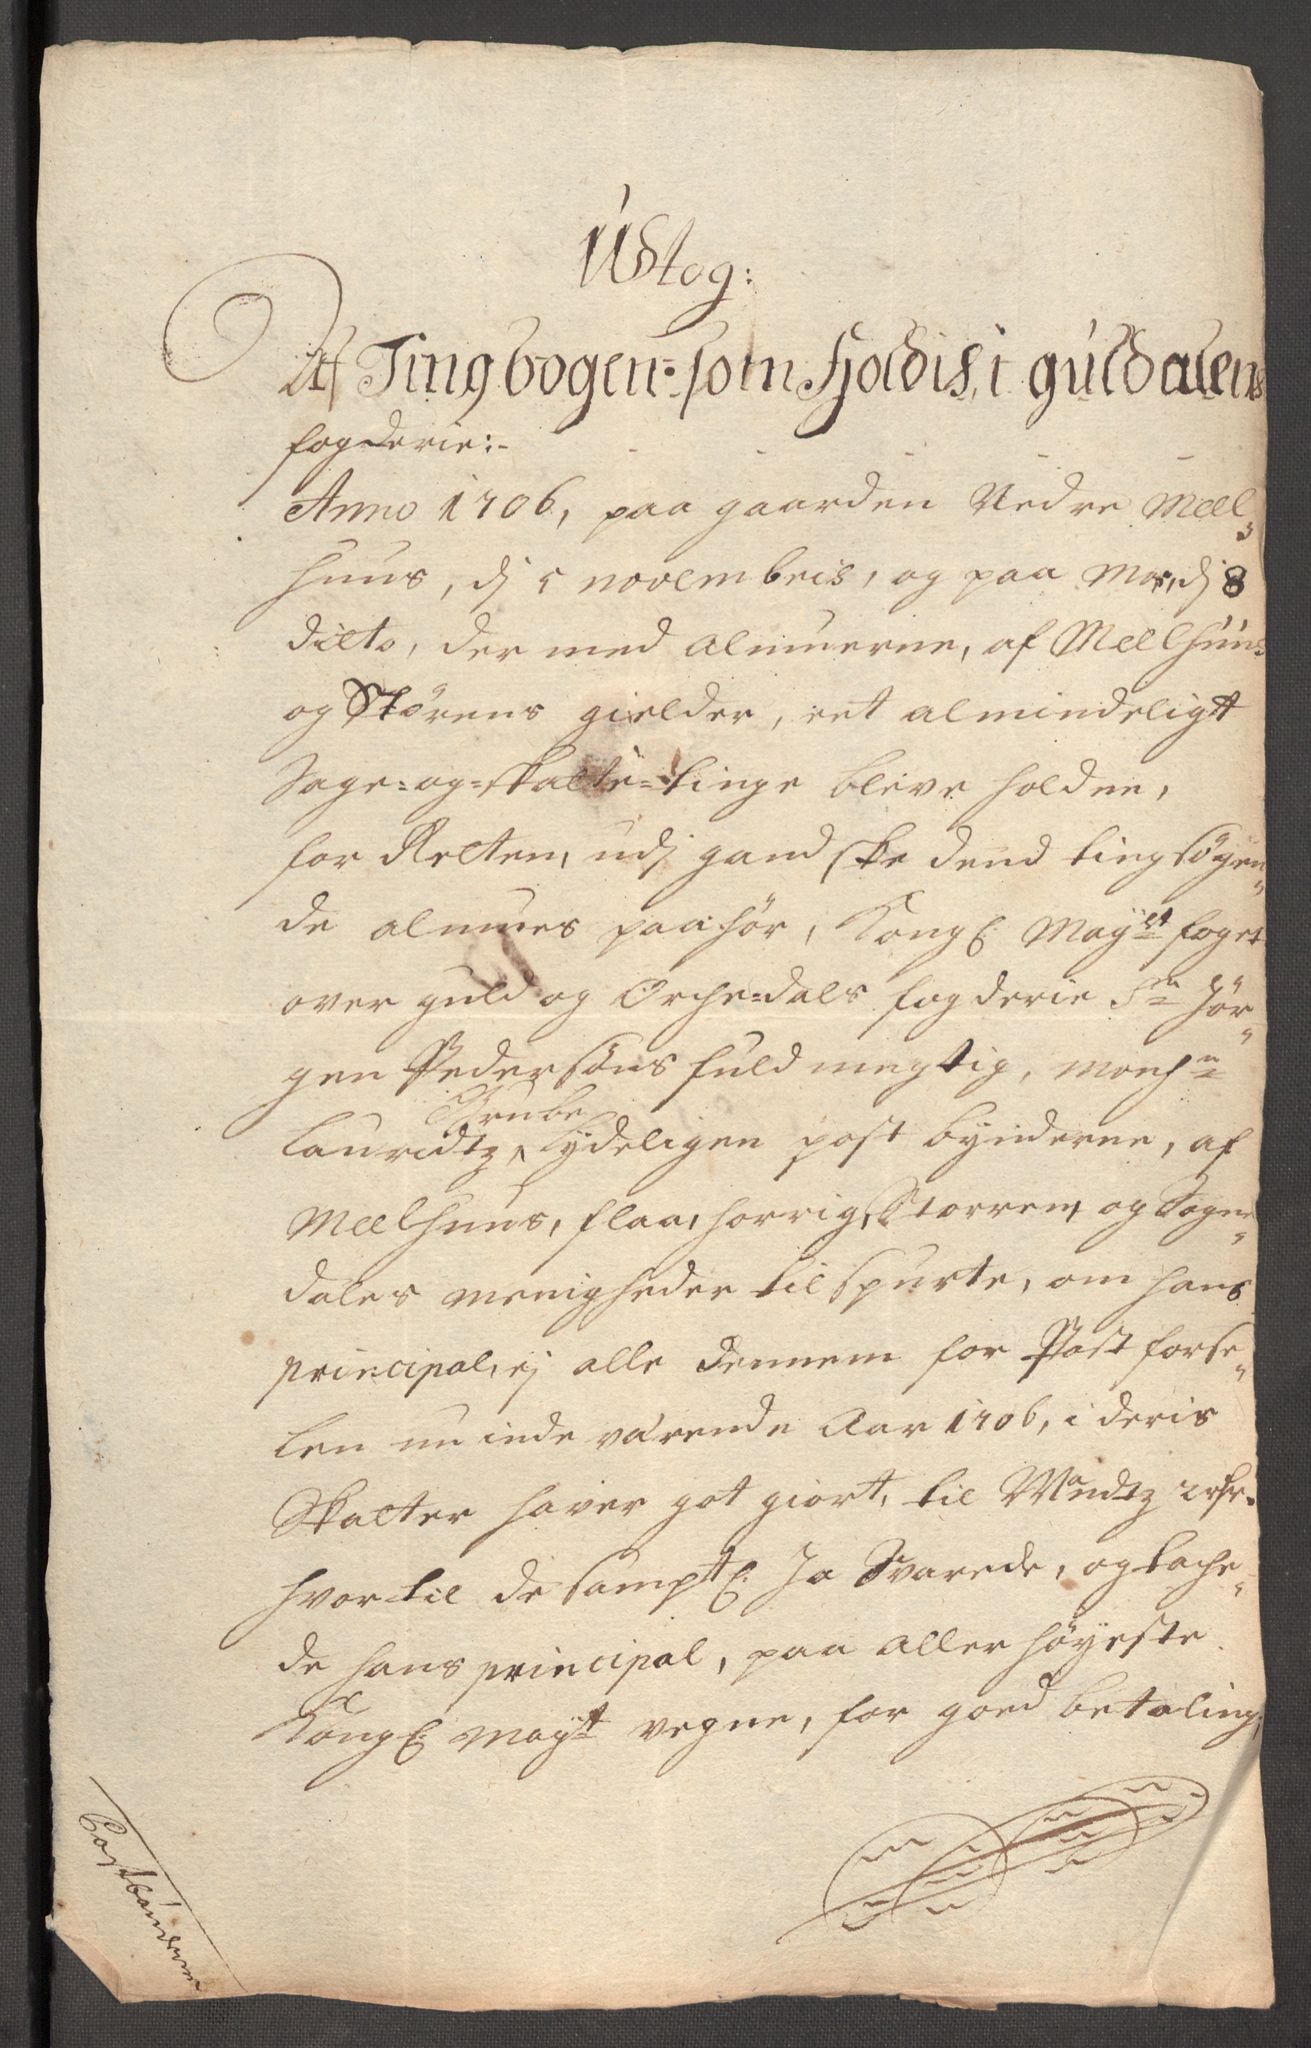 Udtog:
Af Tingbogen som Holdis, i guldalens
fogderie:-
Anno 1706, paa gaarden Nedre Meel-
huus, dj 5 novembris, og paa Moe, dj 8
dicto, der med almuerne, af Meelhuus
og Störens gielder, eet almindeligt
Sage-og-skatte-tinge bleve holden,
for Retten, udj gandske dend tingsögen-
de almues paahör, Kongl: Mayst foget
over guld og Orche-dals fogderie Sr Jör-
gen Pedersöns fuldmegtig, monsr
Lauridtz Brube, lydeligen post bynderne, af
Meelhuus, flaa, horrig, Storren, og Sogne-
dales menigheder tilspurte, om hans
principal, ej alle dennem for Post förse-
len nu inde værende Aar 1706, i deris
Skatter haver got giort, til Mandtz
hvortil de samptl: Ja Svarede, og tache-
de hans principal, paa aller höyeste
Kongl: Mayt vegne, for goed betaling,
Postbönderne